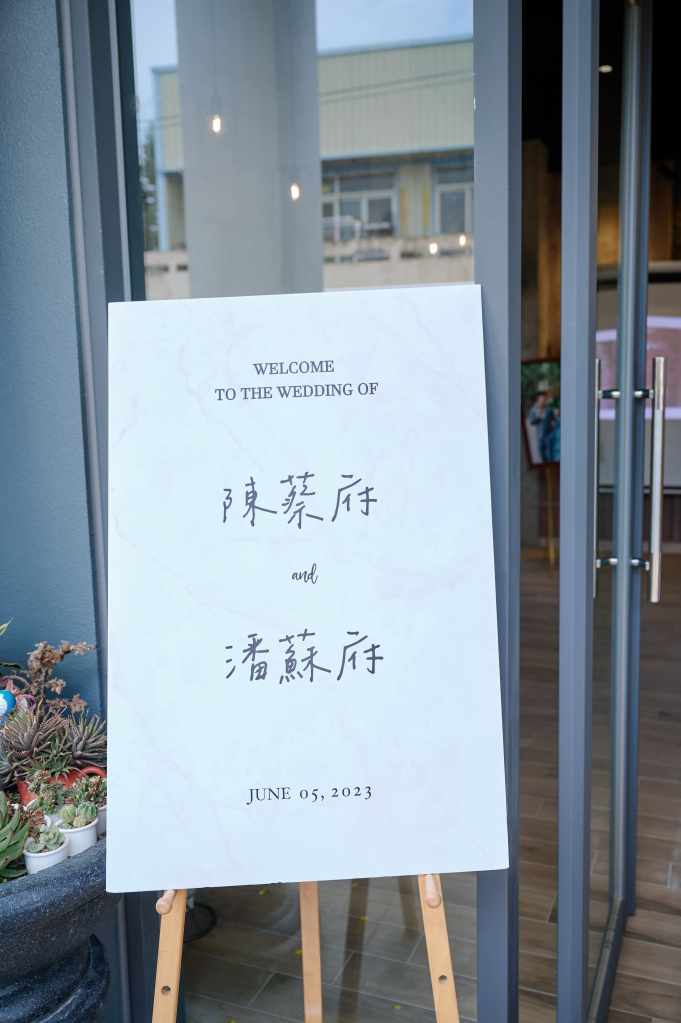 WELCOME
TO THE WEDDING OF
陳蔡府
and
潘蘇府
JUNE 05, 2023